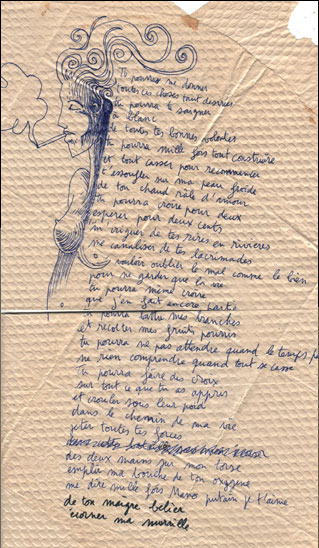 Tu pourras me donner
toutes ces choses tant désirées
tu pourra te saigner
à blanc
de toutes tes bonnes volontés
tu pourra mille fois tout construire
et tout casser pour recommencer
t'essouffler sur ma peau froide
de ton chaud râle d'amour
Tu pourra croire pour deux
espérer pour deux cents
m'irriguer de tes rires en rivières
me canaliser de tes lacrimades
vouloir oublier le mal comme le bien
pour ne garder que la vie
tu pourra même croire
que j'en fait encore partie
tu pourra tailler mes branches
et récolter mes fruits pourris
tu pourra ne pas attendre quand le temps
ne rien comprendre quand tout se casse
Tu pourra faire des croix
sur tout ce que tu as appris
et crouler sous leur poid
dans le chemin de ma voie
jeter toutes tes forces
des deux mains sur mon torse
emplir ma bouche de ton oxygene
me dire mille fois putain je t'aime
de ton maigre belier
ecorner ma muraille